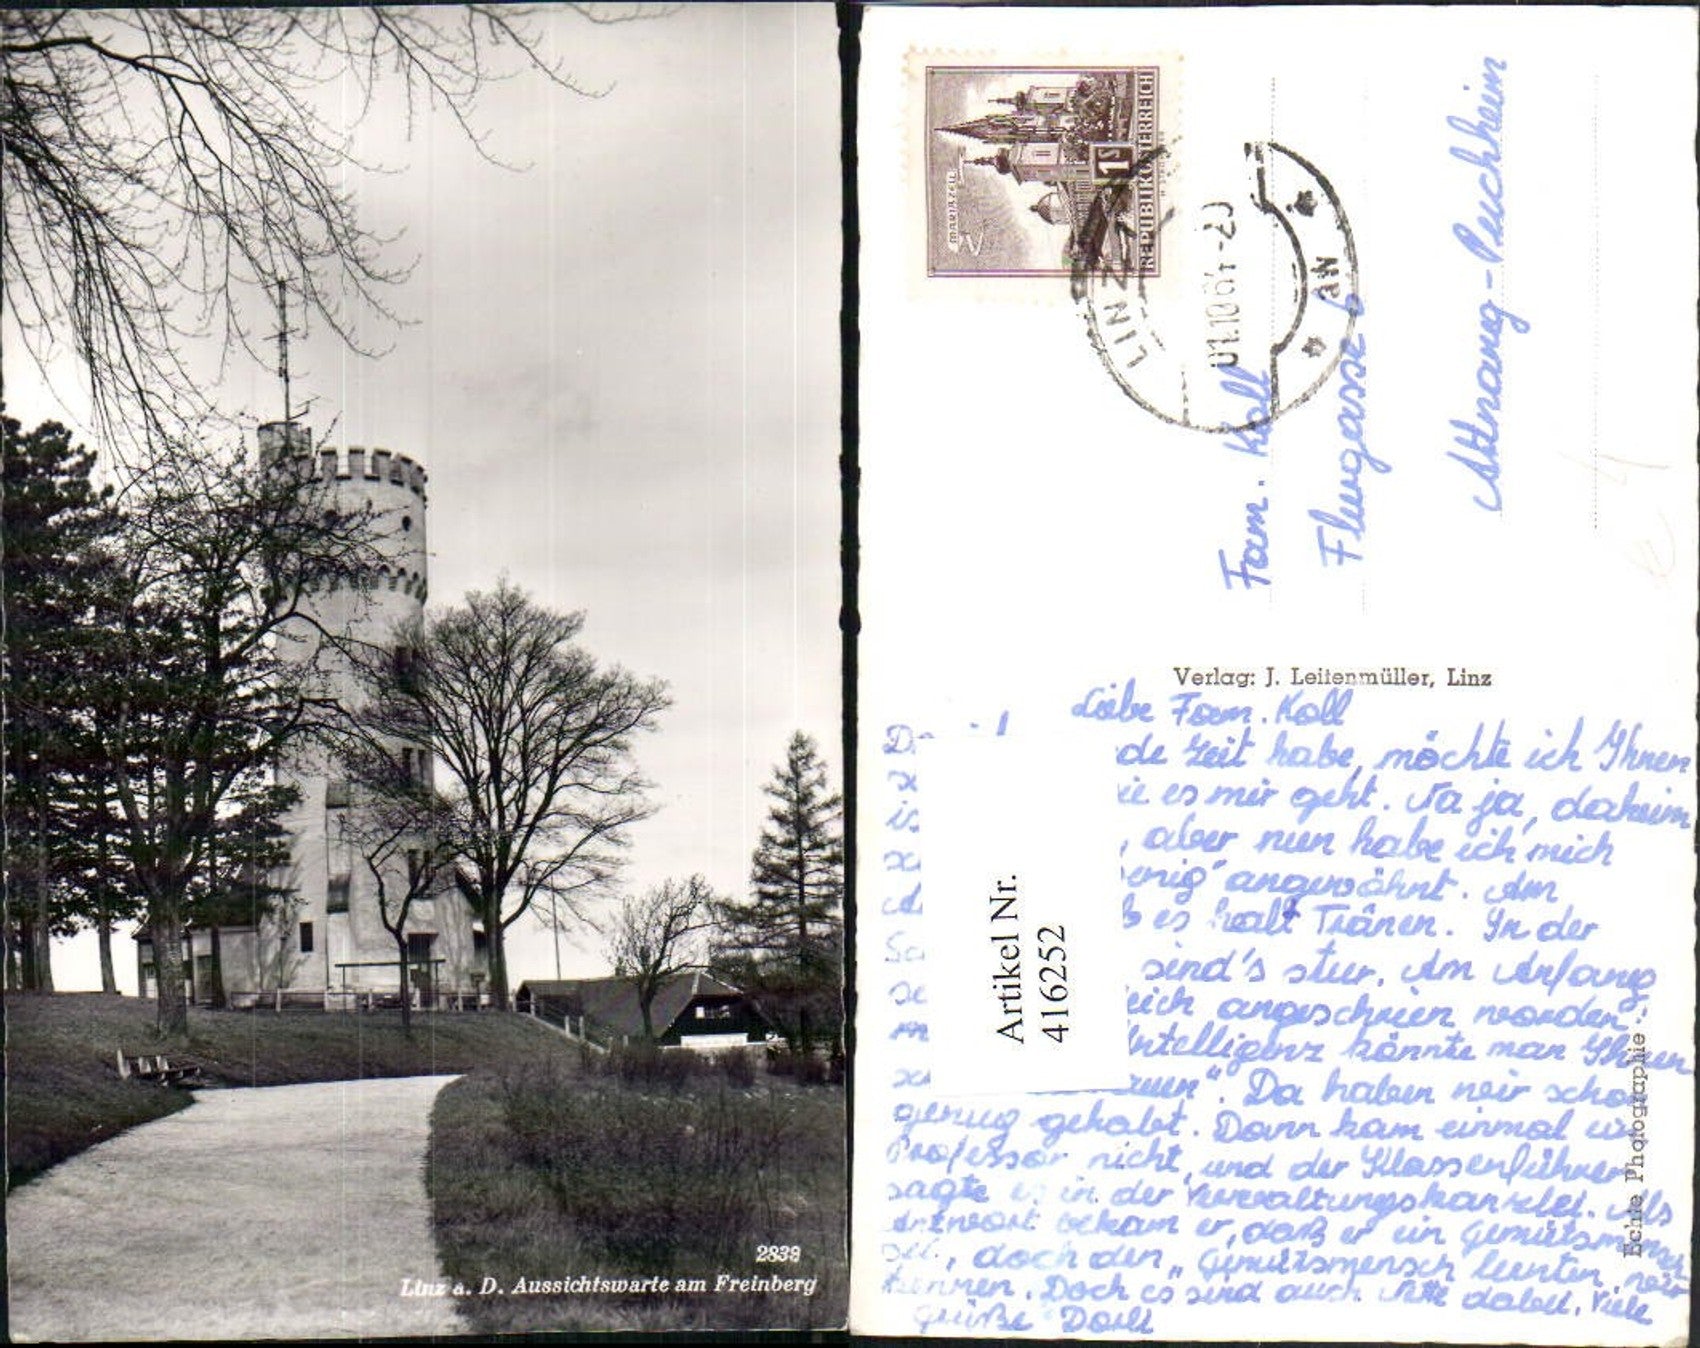 2839
Linz a. D. Aussichtswarte am Freinberg
MARIAZELL
1S
REPUBLIK ÖSTERREICH
LINZ
01.10.64-20
Fam. Koll
Flurgasse 6
Attnang-Puchheim
Verlag: J. Leitenmüller, Linz
Echte Photographie
Artikel Nr.
416252
Liebe Fam. Koll
de Zeit habe, möchte ich Ihnen
es mir geht. Na ja, daheim
, aber nun habe ich mich
enig" angewöhnt. Am
es halt Tränen. In der
sind's stur. Am Anfang
angeschrien worden:
Intelligenz könnte man Ihnen
". Da haben wir schon
genug gehabt. Dann kam einmal ein
Professor nicht, und der Klassenführer
sagte es in der Verwaltungskanzlei. Als
Antwort bekam er, daß er ein Gemütsmensch
sei, doch den "Gemütsmensch lernten wir
kennen. Doch es sind auch Nette dabei. Viele
Grüße